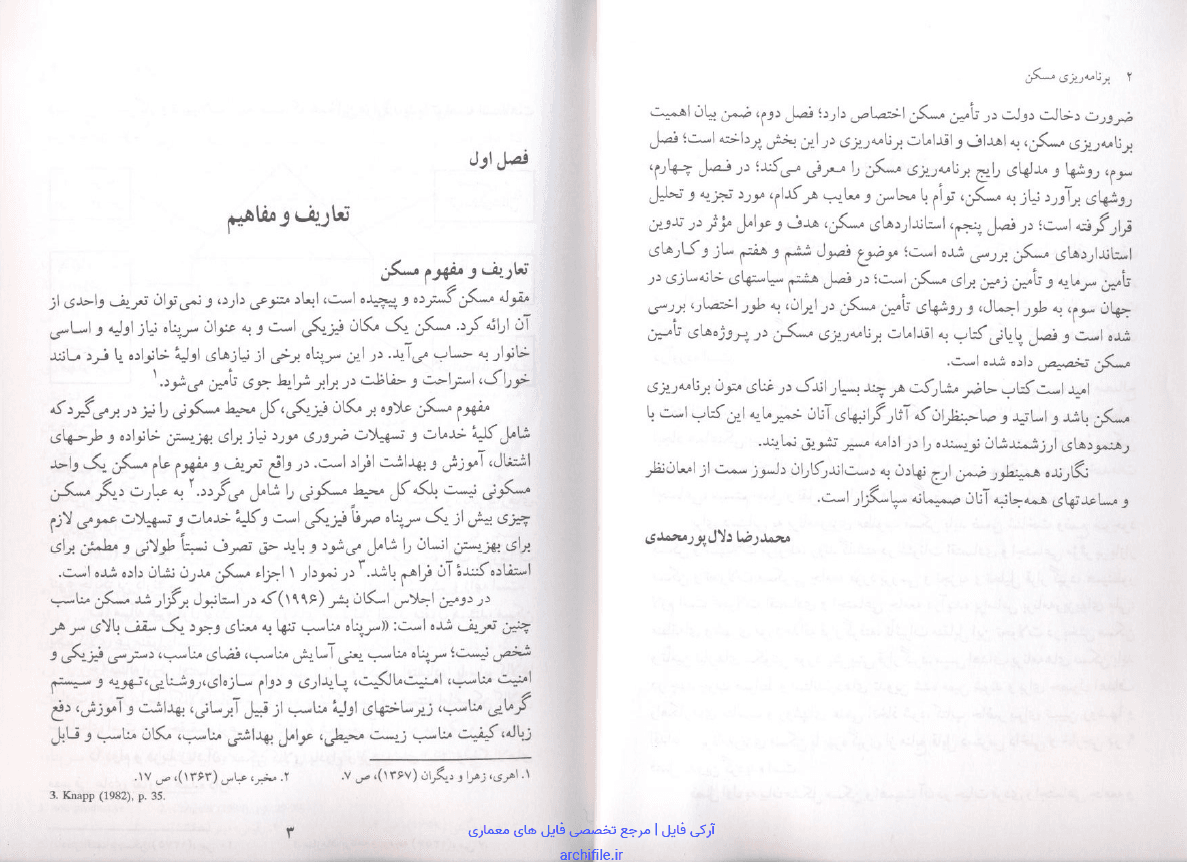 ۲ برنامه‌ریزی مسکن
ضرورت دخالت دولت در تأمین مسکن اختصاص دارد؛ فصل دوم، ضمن بیان اهمیت
برنامه‌ریزی مسکن، به اهداف و اقدامات برنامه‌ریزی در این بخش پرداخته است؛ فصل
سوم، روشها و مدلهای رایج برنامه‌ریزی مسکن را معرفی می‌کند؛ در فصل چهارم،
روشهای برآورد نیاز به مسکن، توأم با محاسن و معایب هر کدام، مورد تجزیه و تحلیل
قرار گرفته است؛ در فصل پنجم، استانداردهای مسکن، هدف و عوامل مؤثر در تدوین
استانداردهای مسکن بررسی شده است؛ موضوع فصول ششم و هفتم ساز و کارهای
تأمین سرمایه و تأمین زمین برای مسکن است؛ در فصل هشتم سیاستهای خانه‌سازی در
جهان سوم، به طور اجمال، و روشهای تأمین مسکن در ایران، به طور اختصار، بررسی
شده است و فصل پایانی کتاب به اقدامات برنامه‌ریزی مسکن در پروژه‌های تأمین
مسکن تخصیص داده شده است.
امید است کتاب حاضر مشارکت هر چند بسیار اندک در غنای متون برنامه‌ریزی
مسکن باشد و اساتید و صاحبنظران که آثار گرانبهای آنان خمیرمایه این کتاب است با
رهنمودهای ارزشمندشان نویسنده را در ادامه مسیر تشویق نمایند.
نگارنده همینطور ضمن ارج نهادن به دست‌اندرکاران دلسوز سمت از امعان‌نظر
و مساعدتهای همه‌جانبه آنان صمیمانه سپاسگزار است.
محمدرضا دلال‌پورمحمدی
فصل اول
تعاریف و مفاهیم
تعاریف و مفهوم مسکن
مقوله مسکن گسترده و پیچیده است، ابعاد متنوعی دارد، و نمی‌توان تعریف واحدی از
آن ارائه کرد. مسکن یک مکان فیزیکی است و به عنوان سرپناه نیاز اولیه و اساسی
خانوار به حساب می‌آید. در این سرپناه برخی از نیازهای اولیهٔ خانواده یا فرد مانند
خوراک، استراحت و حفاظت در برابر شرایط جوی تأمین می‌شود.۱
مفهوم مسکن علاوه بر مکان فیزیکی، کل محیط مسکونی را نیز در برمی‌گیرد که
شامل کلیهٔ خدمات و تسهیلات ضروری مورد نیاز برای بهزیستن خانواده و طرحهای
اشتغال، آموزش و بهداشت افراد است. در واقع تعریف و مفهوم عام مسکن یک واحد
مسکونی نیست بلکه کل محیط مسکونی را شامل می‌گردد.۲ به عبارت دیگر مسکن
چیزی بیش از یک سرپناه صرفاً فیزیکی است و کلیهٔ خدمات و تسهیلات عمومی لازم
برای بهزیستن انسان را شامل می‌شود و باید حق تصرف نسبتاً طولانی و مطمئن برای
استفاده کنندهٔ آن فراهم باشد.۳ در نمودار ۱ اجزاء مسکن مدرن نشان داده شده است.
در دومین اجلاس اسکان بشر (۱۹۹۶) که در استانبول برگزار شد مسکن مناسب
چنین تعریف شده است: «سرپناه مناسب تنها به معنای وجود یک سقف بالای سر هر
شخص نیست؛ سرپناه مناسب یعنی آسایش مناسب، فضای مناسب، دسترسی فیزیکی و
امنیت مناسب، امنیت مالکیت، پایداری و دوام سازه‌ای، روشنایی، تهویه و سیستم
گرمایی مناسب، زیرساختهای اولیهٔ مناسب از قبیل آبرسانی، بهداشت و آموزش، دفع
زباله، کیفیت مناسب زیست محیطی، عوامل بهداشتی مناسب، مکان مناسب و قابل
۱. اهری، زهرا و دیگران (۱۳۶۷)، ص ۷. ۲. مخبر، عباس (۱۳۶۳)، ص ۱۷.
3. Knapp (1982), p. 35.
۳
آرکی فایل | مرجع تخصصی فایل های معماری
archifile.ir